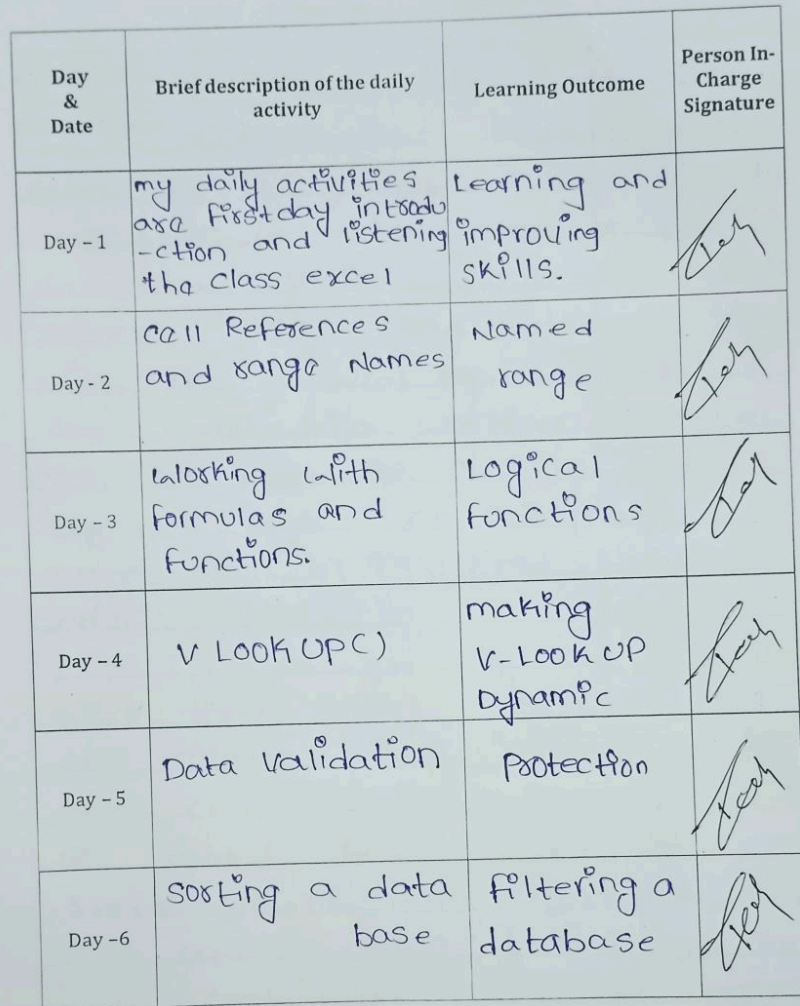 Day
&
Date
Brief description of the daily
activity
Learning Outcome
Person In-
Charge
Signature
Day – 1
my daily activities
are first day introdu
-ction and listening
the class excel
Learning and
improving
skills.
Day - 2
Cell References
and range Names
Named
range
Day – 3
Working with
formulas and
functions.
Logical
functions
Day – 4
V LOOKUP()
making
V-LOOKUP
Dynamic
Day – 5
Data validation
Protection
Day –6
sorting a data
base
filtering a
database